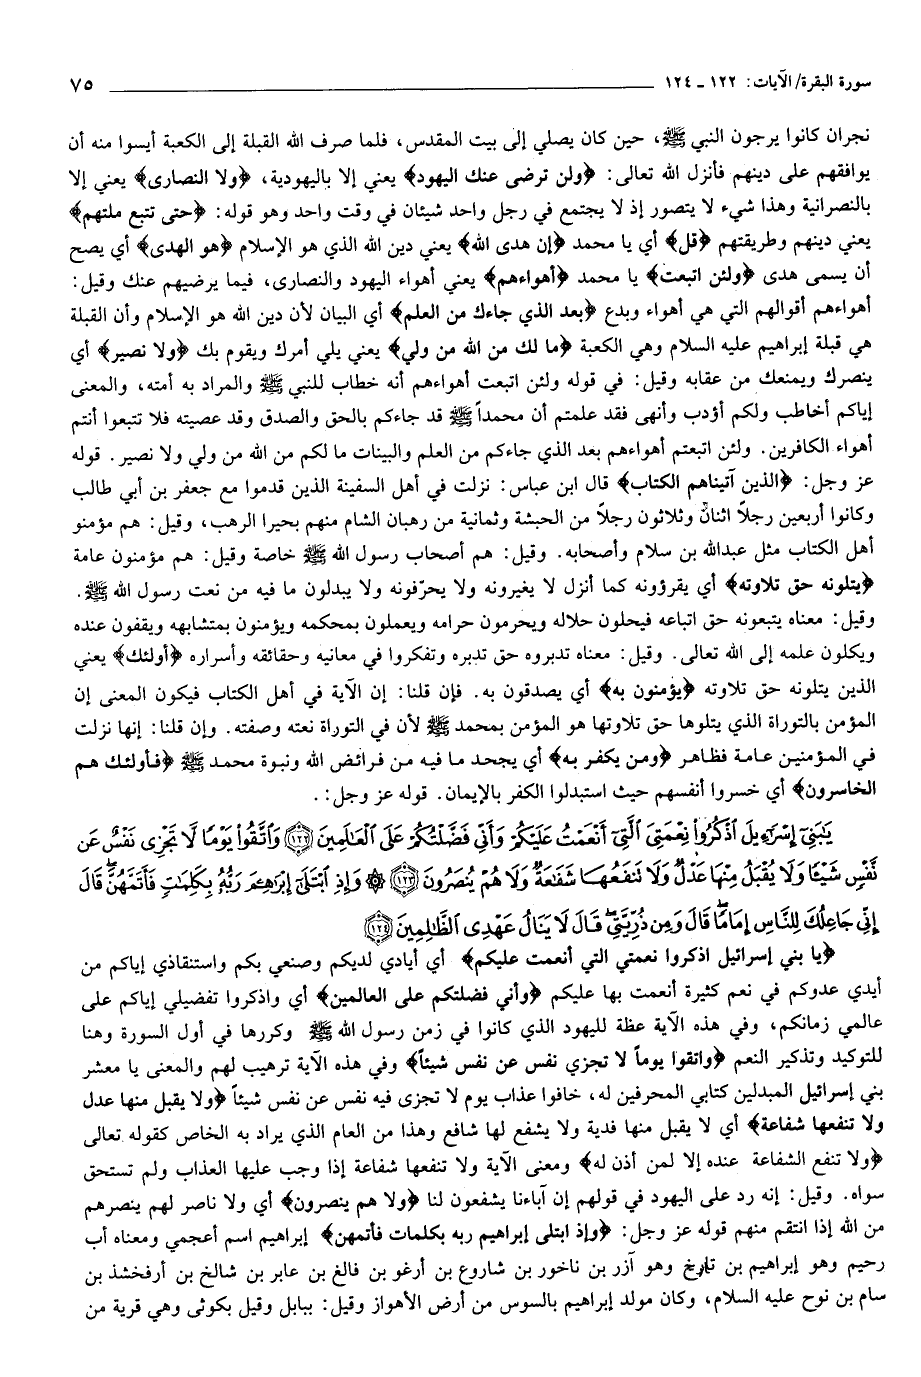 سورة البقرة/ الآيات: ١٢٢ ـ ١٢٤ ٧٥
نجران كانوا يرجون النبي ﷺ، حين كان يصلي إلى بيت المقدس، فلما صرف الله القبلة إلى الكعبة أيسوا منه أن
يوافقهم على دينهم فأنزل الله تعالى: ﴿ولن ترضى عنك اليهود﴾ يعني إلا باليهودية، ﴿ولا النصارى﴾ يعني إلا
بالنصرانية وهذا شيء لا يتصور إذ لا يجتمع في رجل واحد شيئان في وقت واحد وهو قوله: ﴿حتى تتبع ملتهم﴾
يعني دينهم وطريقتهم ﴿قل﴾ أي يا محمد ﴿إن هدى الله﴾ يعني دين الله الذي هو الإسلام ﴿هو الهدى﴾ أي يصح
أن يسمى هدى ﴿ولئن اتبعت﴾ يا محمد ﴿أهواءهم﴾ يعني أهواء اليهود والنصارى، فيما يرضيهم عنك وقيل:
أهواءهم أقوالهم التي هي أهواء وبدع ﴿بعد الذي جاءك من العلم﴾ أي البيان لأن دين الله هو الإسلام وأن القبلة
هي قبلة إبراهيم عليه السلام وهي الكعبة ﴿ما لك من الله من ولي﴾ يعني يلي أمرك ويقوم بك ﴿ولا نصير﴾ أي
ينصرك ويمنعك من عقابه وقيل: في قوله ولئن اتبعت أهواءهم أنه خطاب للنبي ﷺ والمراد به أمته، والمعنى
إياكم أخاطب ولكم أؤدب وأنهى فقد علمتم أن محمداً ﷺ قد جاءكم بالحق والصدق وقد عصيته فلا تتبعوا أنتم
أهواء الكافرين. ولئن اتبعتم أهواءهم بعد الذي جاءكم من العلم والبينات ما لكم من الله من ولي ولا نصير. قوله
عز وجل: ﴿الذين آتيناهم الكتاب﴾ قال ابن عباس: نزلت في أهل السفينة الذين قدموا مع جعفر بن أبي طالب
وكانوا أربعين رجلاً اثنان وثلاثون رجلاً من الحبشة وثمانية من رهبان الشام منهم بحيرا الرهب، وقيل: هم مؤمنو
أهل الكتاب مثل عبدالله بن سلام وأصحابه. وقيل: هم أصحاب رسول الله ﷺ خاصة وقيل: هم مؤمنون عامة
﴿يتلونه حق تلاوته﴾ أي يقرؤونه كما أنزل لا يغيرونه ولا يحرّفونه ولا يبدلون ما فيه من نعت رسول الله ﷺ.
وقيل: معناه يتبعونه حق اتباعه فيحلون حلاله ويحرمون حرامه ويعملون بمحكمه ويؤمنون بمتشابهه ويقفون عنده
ويكلون علمه إلى الله تعالى. وقيل: معناه تدبروه حق تدبره وتفكروا في معانيه وحقائقه وأسراره ﴿أولئك﴾ يعني
الذين يتلونه حق تلاوته ﴿يؤمنون به﴾ أي يصدقون به. فإن قلنا: إن الآية في أهل الكتاب فيكون المعنى إن
المؤمن بالتوراة الذي يتلوها حق تلاوتها هو المؤمن بمحمد ﷺ لأن في التوراة نعته وصفته. وإن قلنا: إنها نزلت
في المؤمنين عامة فظاهر ﴿ومن يكفر به﴾ أي يجحد ما فيه من فرائض الله ونبوة محمد ﷺ ﴿فأولئك هم
الخاسرون﴾ أي خسروا أنفسهم حيث استبدلوا الكفر بالإيمان. قوله عز وجل: .
يَٰبَنِىٓ إِسْرَٰٓءِيلَ ٱذْكُرُوا۟ نِعْمَتِىَ ٱلَّتِىٓ أَنْعَمْتُ عَلَيْكُمْ وَأَنِّى فَضَّلْتُكُمْ عَلَى ٱلْعَٰلَمِينَ ﴿١٢٢﴾ وَٱتَّقُوا۟ يَوْمًا لَّا تَجْزِى نَفْسٌ عَن
نَّفْسٍ شَيْـًٔا وَلَا يُقْبَلُ مِنْهَا عَدْلٌ وَلَا تَنفَعُهَا شَفَٰعَةٌ وَلَا هُمْ يُنصَرُونَ ﴿١٢٣﴾ ۞ وَإِذِ ٱبْتَلَىٰٓ إِبْرَٰهِـۧمَ رَبُّهُۥ بِكَلِمَٰتٍ فَأَتَمَّهُنَّ ۖ قَالَ
إِنِّى جَاعِلُكَ لِلنَّاسِ إِمَامًا ۖ قَالَ وَمِن ذُرِّيَّتِى ۖ قَالَ لَا يَنَالُ عَهْدِى ٱلظَّٰلِمِينَ ﴿١٢٤﴾
﴿يا بني إسرائيل اذكروا نعمتي التي أنعمت عليكم﴾ أي أيادي لديكم وصنعي بكم واستنقاذي إياكم من
أيدي عدوكم في نعم كثيرة أنعمت بها عليكم ﴿وأني فضلتكم على العالمين﴾ أي واذكروا تفضيلي إياكم على
عالمي زمانكم، وفي هذه الآية عظة لليهود الذي كانوا في زمن رسول الله ﷺ وكررها في أول السورة وهنا
للتوكيد وتذكير النعم ﴿واتقوا يوماً لا تجزي نفس عن نفس شيئاً﴾ وفي هذه الآية ترهيب لهم والمعنى يا معشر
بني إسرائيل المبدلين كتابي المحرفين له، خافوا عذاب يوم لا تجزى فيه نفس عن نفس شيئاً ﴿ولا يقبل منها عدل
ولا تنفعها شفاعة﴾ أي لا يقبل منها فدية ولا يشفع لها شافع وهذا من العام الذي يراد به الخاص كقوله تعالى
﴿ولا تنفع الشفاعة عنده إلا لمن أذن له﴾ ومعنى الآية ولا تنفعها شفاعة إذا وجب عليها العذاب ولم تستحق
سواه. وقيل: إنه رد على اليهود في قولهم إن آباءنا يشفعون لنا ﴿ولا هم ينصرون﴾ أي ولا ناصر لهم ينصرهم
من الله إذا انتقم منهم قوله عز وجل: ﴿وإذ ابتلى إبراهيم ربه بكلمات فأتمهن﴾ إبراهيم اسم أعجمي ومعناه أب
رحيم وهو إبراهيم بن تارخ وهو آزر بن ناخور بن شاروع بن أرغو بن فالغ بن عابر بن شالخ بن أرفخشذ بن
سام بن نوح عليه السلام، وكان مولد إبراهيم بالسوس من أرض الأهواز وقيل: ببابل وقيل بكوثى وهي قرية من